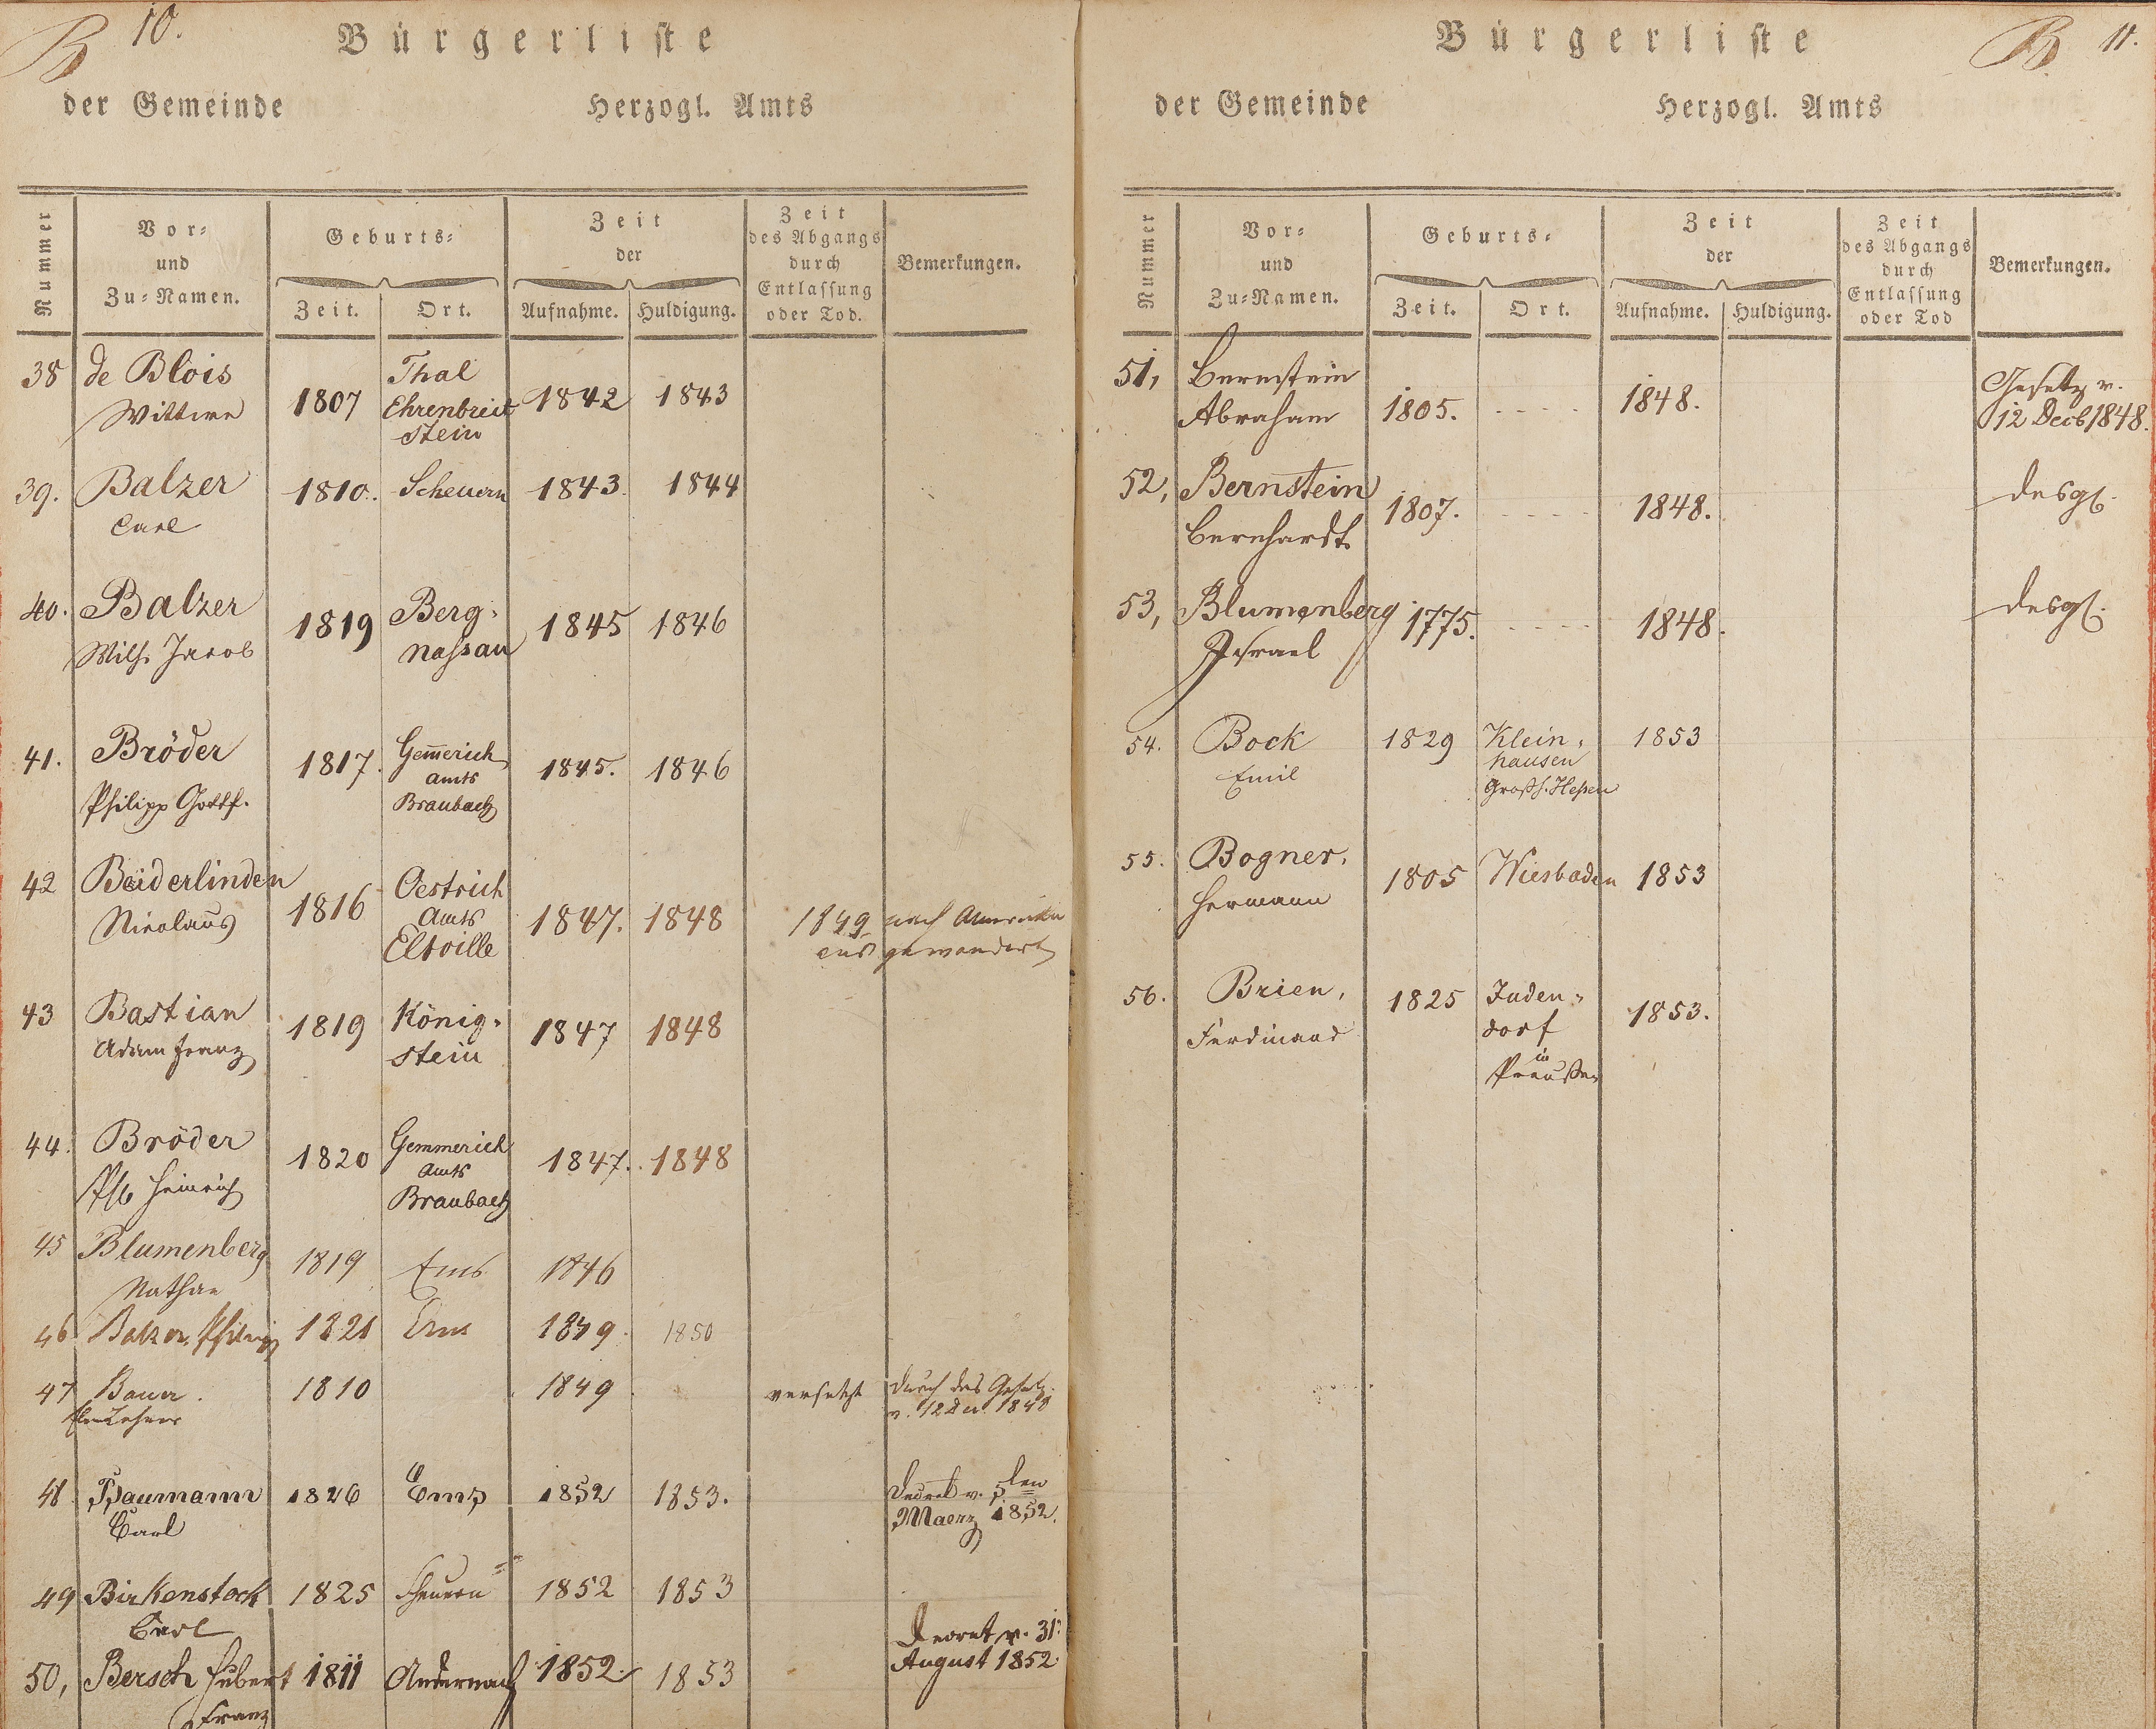 B 10.
Bürgerliste
der Gemeinde Herzogl. Amts
Nummer
Vor-
und
Zu-Namen.
Geburts-
Zeit. Ort.
Zeit
der
Aufnahme. Huldigung.
Zeit
des Abgangs
durch
Entlassung
oder Tod.
Bemerkungen.
38 de Blois Thal
Wittwe 1807 Ehrenbreit 1842 1843
stein
39. Balzer 1810. Scheuern 1843. 1844
Carl
40. Balzer 1819 Berg- 1845 1846
Wilh. Jacob Nassau
41. Bröder 1817. Gem̅erich 1845. 1846
Amts
Philipp Gottf. Braubach
42 Beiderlinden Oestrich
Nicolaus 1816 Amts 1847. 1848 1849 nach Amerika
Eltville ausgewandert
43 Bastian 1819 König- 1847 1848
Adam Franz stein
44. Bröder 1820 Gemmerich 1847. 1848
Amts
Ph. Heinrich Braubach
45 Blumenberg 1819 Ems 1846
Nathan
46 Balzer, Philipp 1821 Ems 1849. 1850
47 Bauer. 1810 1849 versetzt durch das Gesetz
Lehrer v. 12 Dec. 1848
48 Baumann 1826 Ems 1852 1853. Decret v. 5ten
Carl Maerz 1852.
49 Birkenstock 1825 Scheuern 1852 1853
Carl
Decret v. 31.
50, Bersch Hubert 1811 Andernach 1852. 1853 August 1852.
Franz
B. 11.
Bürgerliste
der Gemeinde Herzogl. Amts
Nummer
Vor-
und
Zu-Namen.
Geburts-
Zeit. Ort.
Zeit
der
Aufnahme. Huldigung.
Zeit
des Abgangs
durch
Entlassung
oder Tod
Bemerkungen.
51, Bernstein Gesetz v.
Abraham 1805. - - - - 1848. 12 Decb 1848.
52, Bernstein 1807. - - - - 1848. desgl.
Bernhardt
53, Blumenberg 1775. - - - - 1848. desgl.
Israel
54. Bock 1829 Klein- 1853
Emil hausen
Großh. Hessen
55. Bogner, 1805 Wiesbaden 1853
Hermann
56. Brien, 1825 Juden- 1853.
Ferdinand dorf
in
Preußen